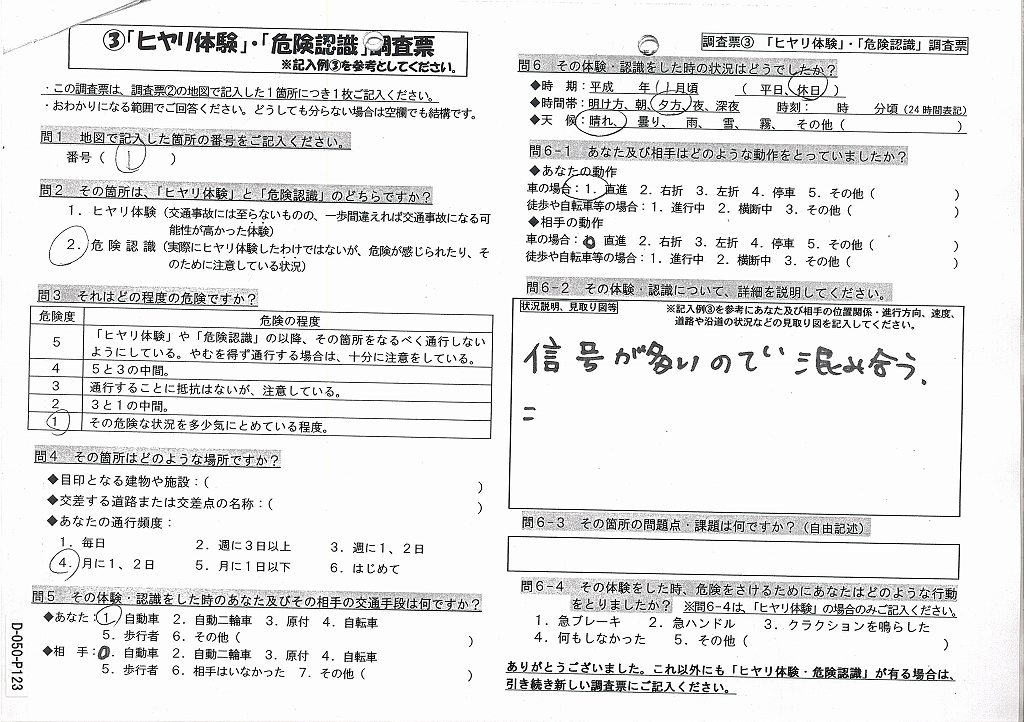 ③「ヒヤリ体験」・「危険認識」調査票
※記入例③を参考としてください。
・この調査票は、調査票②の地図で記入した1箇所につき1枚ご記入ください。
・おわかりになる範囲でご回答ください。どうしても分らない場合は空欄でも結構です。
問1 地図で記入した箇所の番号をご記入ください。
番号( 1 )
問2 その箇所は、「ヒヤリ体験」と「危険認識」のどちらですか?
1.ヒヤリ体験(交通事故には至らないものの、一歩間違えれば交通事故になる可
能性が高かった体験)
2.危険認識(実際にヒヤリ体験したわけではないが、危険が感じられたり、そ
のために注意している状況)
問3 それはどの程度の危険ですか?
危険度 危険の程度
5 「ヒヤリ体験」や「危険認識」の以降、その箇所をなるべく通行しない
ようにしている。やむを得ず通行する場合は、十分に注意をしている。
4 5と3の中間。
3 通行することに抵抗はないが、注意している。
2 3と1の中間。
1 その危険な状況を多少気にとめている程度。
問4 その箇所はどのような場所ですか?
◆目印となる建物や施設:( )
◆交差する道路または交差点の名称:( )
◆あなたの通行頻度:
1.毎日 2.週に3日以上 3.週に1、2日
4.月に1、2日 5.月に1日以下 6.はじめて
問5 その体験・認識をした時のあなた及びその相手の交通手段は何ですか?
◆あなた:1.自動車 2.自動二輪車 3.原付 4.自転車
5.歩行者 6.その他( )
◆相 手:1.自動車 2.自動二輪車 3.原付 4.自転車
5.歩行者 6.相手はいなかった 7.その他( )
D-050-P123
調査票③ 「ヒヤリ体験」・「危険認識」調査票
問6 その体験・認識をした時の状況はどうでしたか?
◆時 期:平成 年 11月頃 ( 平日、休日 )
◆時間帯:明け方、朝、夕方、夜、深夜 時刻: 時 分頃(24時間表記)
◆天 候:晴れ、 曇り、 雨、 雪、 霧、 その他( )
問6-1 あなた及び相手はどのような動作をとっていましたか?
◆あなたの動作
車の場合:1.直進 2.右折 3.左折 4.停車 5.その他( )
徒歩や自転車等の場合:1.進行中 2.横断中 3.その他( )
◆相手の動作
車の場合:1.直進 2.右折 3.左折 4.停車 5.その他( )
徒歩や自転車等の場合:1.進行中 2.横断中 3.その他( )
問6-2 その体験・認識について、詳細を説明してください。
状況説明、見取り図等 ※記入例③を参考にあなた及び相手の位置関係・進行方向、速度、
道路や沿道の状況などの見取り図を記入してください。
信号が多いので混み合う.
=
問6-3 その箇所の問題点・課題は何ですか?(自由記述)
問6-4 その体験をした時、危険をさけるためにあなたはどのような行動
をとりましたか? ※問6-4は、「ヒヤリ体験」の場合のみご記入ください。
1.急ブレーキ 2.急ハンドル 3.クラクションを鳴らした
4.何もしなかった 5.その他( )
ありがとうございました。これ以外にも「ヒヤリ体験・危険認識」が有る場合は、
引き続き新しい調査票にご記入ください。